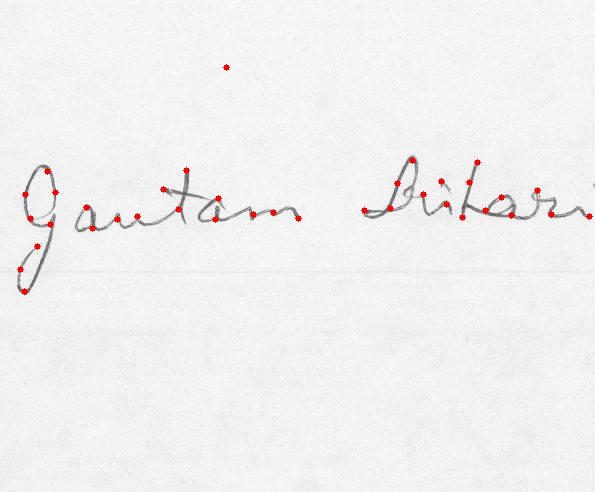 Gautam Bikari